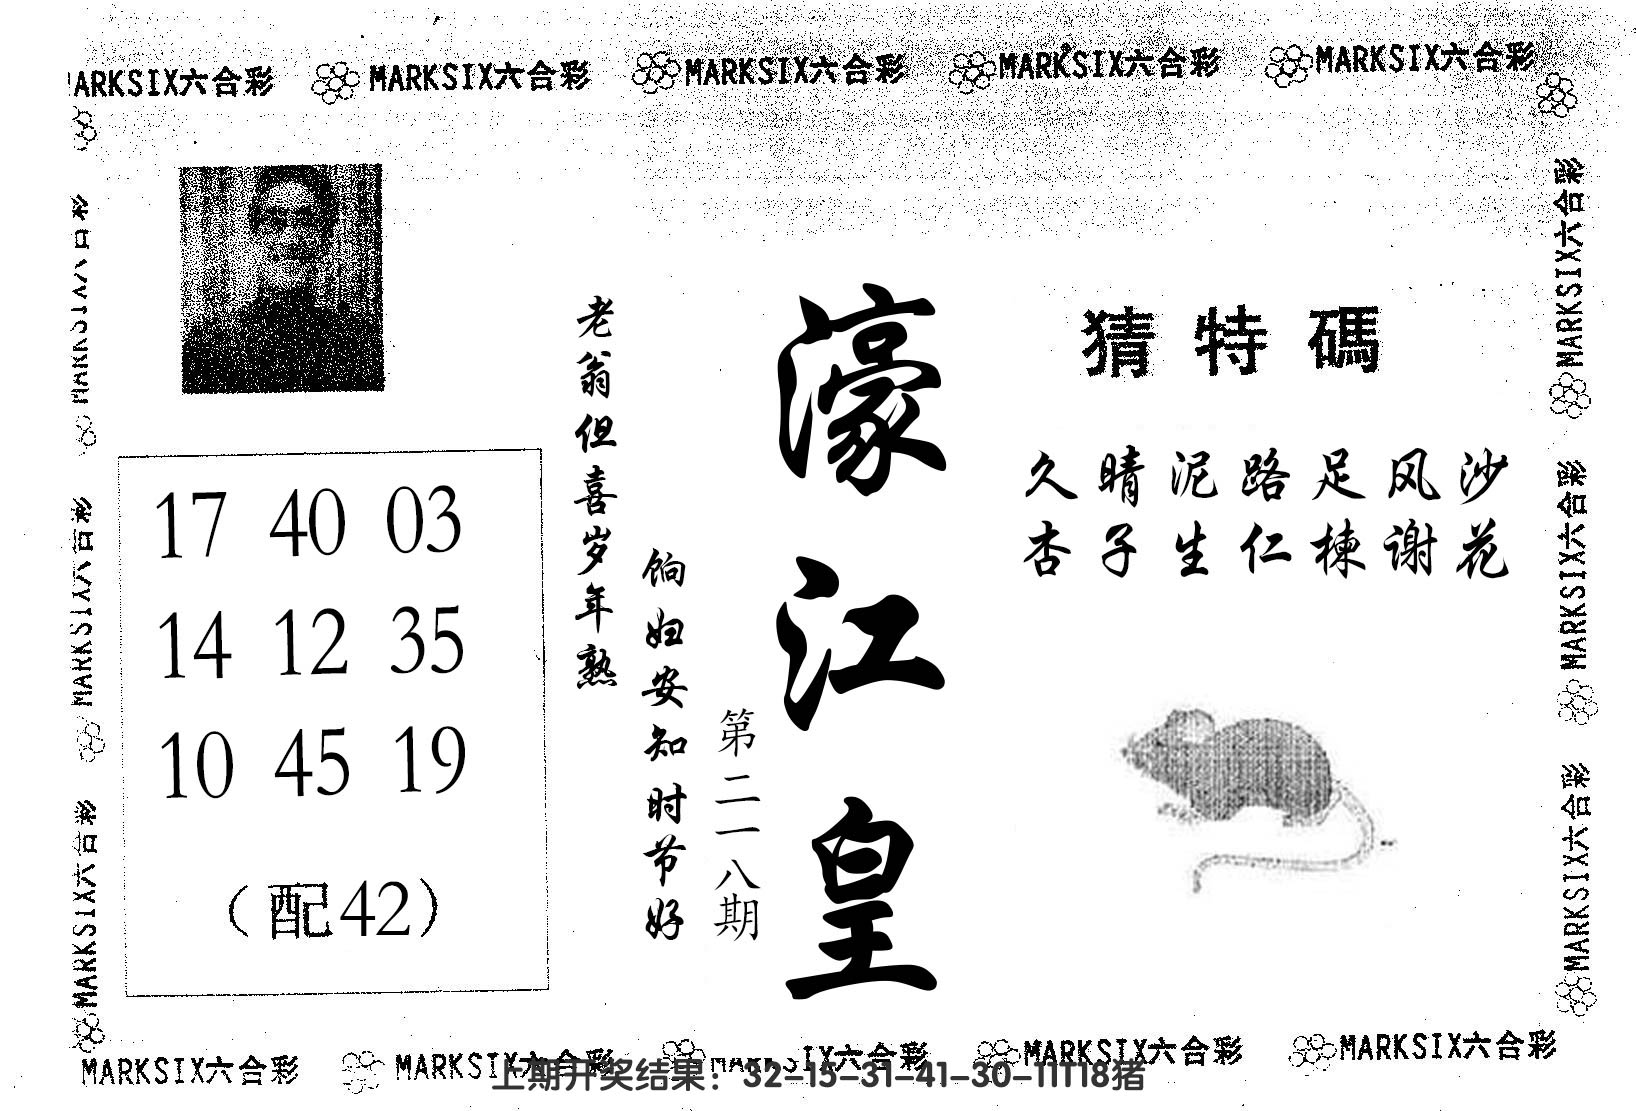 MARKSIX六合彩 MARKSIX六合彩 MARKSIX六合彩 MARKSIX六合彩 MARKSIX六合彩
猜特碼
久晴泥路足风沙
杏子生仁楝谢花
濠江皇
第二一八期
饷妇安知时节好
老翁但喜岁年熟
17 40 03
14 12 35
10 45 19
（配42）
MARKSIX六合彩
MARKSIX六合彩
MARKSIX六合彩
MARKSIX六合彩
MARKSIX六合彩
MARKSIX六合彩
MARKSIX六合彩 MARKSIX六合彩 MARKSIX六合彩 MARKSIX六合彩 MARKSIX六合彩
上期开奖结果：32-15-31-41-30-11T18猪